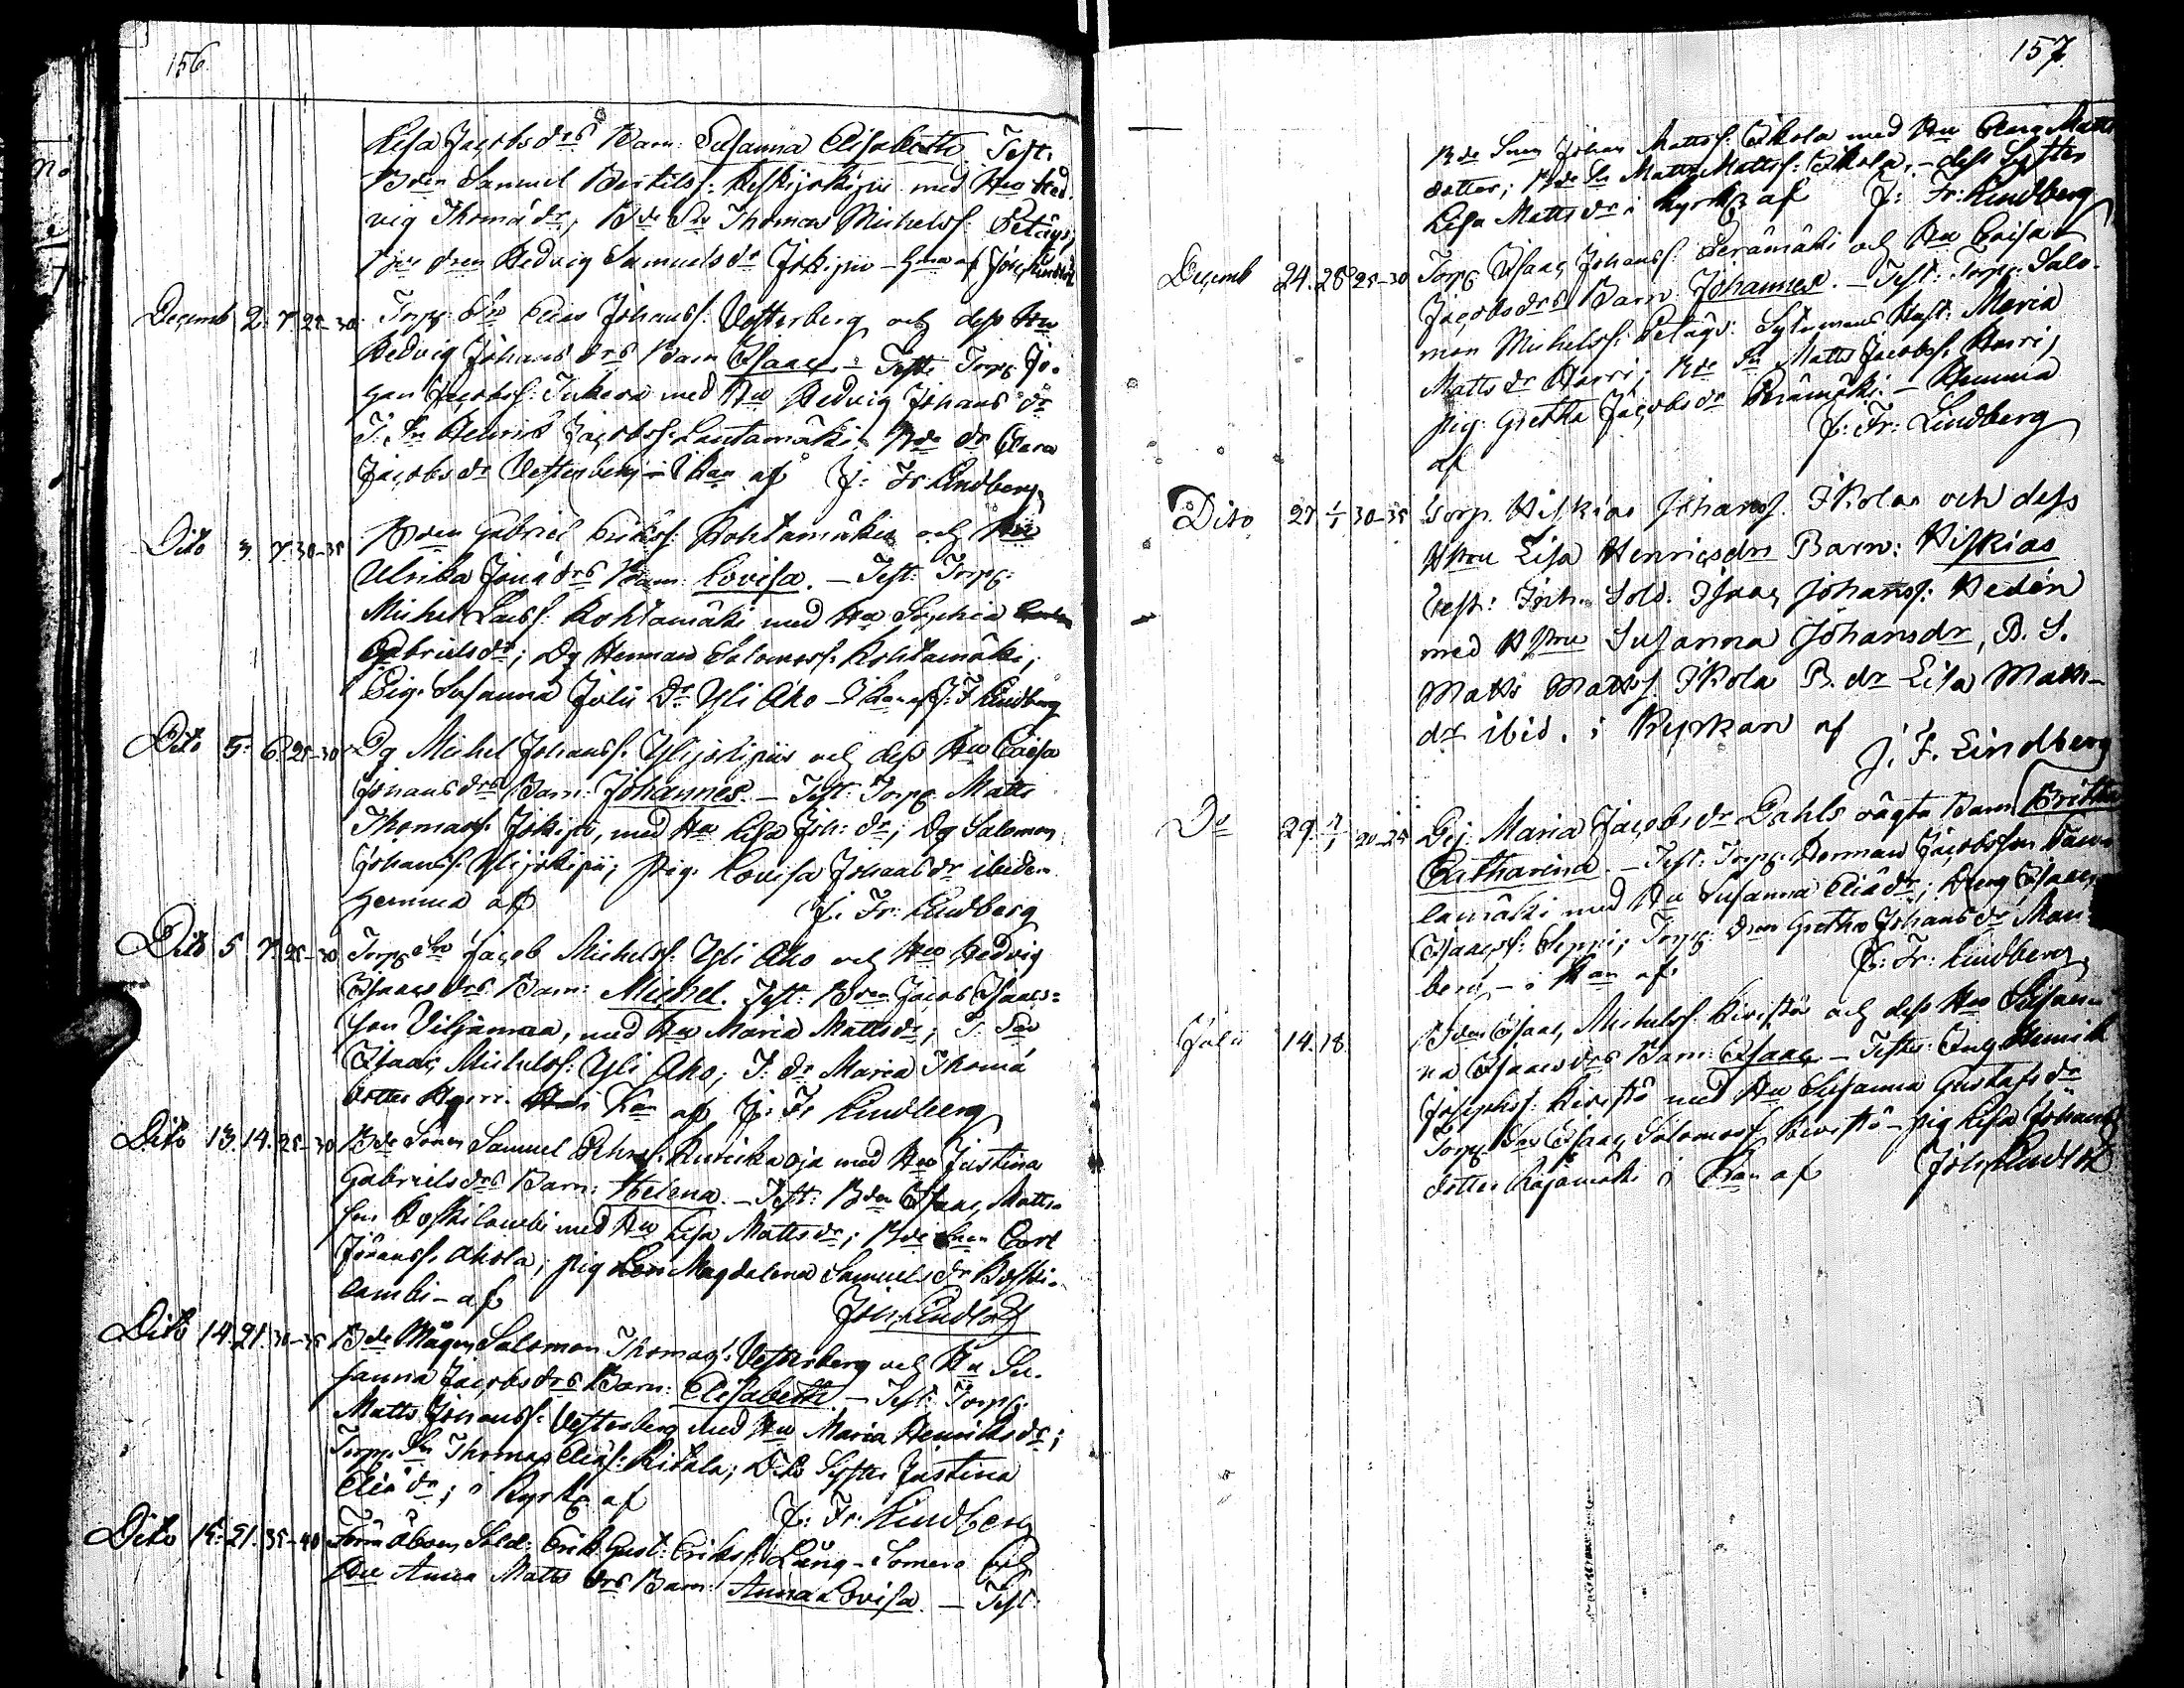 156.
Lisa Jacobsdrs Barn: Susanna Elisabeth. Test:
Bden Samuel Bertilss: Keskijokipii med Hu Hed-
vig Thomædr, Bde Sn Thomas Michelss: Petäys;
dren Hedvig Samuelsdr Jokipii – af Joh. Lindstedt
Decemb 2. 7. 25–30 Torp: Sn Elias Johanss: Vesterberg och dess Hu
Hedvig Johansdrs Barn Isaac – Test: Torp: Jo-
han Jacobss: med Hu Hedvig Johansdr
T. Sn Henrik Jacobss: Lautamäki. Bde dr Clara
Jacobsdr Vesterberg – i Kan af J: Fr: Lindberg
Dito 3. 7. 30–35 Bden Gabriel Erikss: Kohtamäki och Hu
Ulrika Jonædrs Barn: Lovisa. – Test: Torp:
Michel Larss: Kohtamäki med Hu Sophia
Gabrielsdr; Dg Herman Salomonss: Kohtamäki;
Pig: Susanna Julii dr Yli Aho – i Kan af J: F Lindberg
Dito 5. 6. 25–30 Dg Michel Johanss: Ylijokipii och dess Hu Caisa
Johansdrs Barn: Johannes. – Test: Torp: Matts
Thomass: Jokipii, med Hu Lisa Joh: dr; Dg Salomon
Johanss: Ylijokipii; pig: Lovisa Johansdr ibidem
hemma af J: Fr: Lindberg
Dito 5. 7. 25–30 Torp: Sn Jacob Michelss: Yli Aho och Hu Hedvig
Isaacsdrs Barn: Michel. Test: Bden Jacob Isaacs=
son Viljamaa, med Hu Maria Mattsdr; T. Sn
Isaac Michelss: Yli Aho; T: dr Maria Thomæ
dotter Harri. i Kan af J: Fr Lindberg
Dito 13. 14. 25–30 Bde Sonen Samuel Kurikka oja med Hu Justina
Gabrielsdrs Barn: Helena. – Test: Bden Isaac Matts-
son Koskilambi med Hu Lisa Mattsdr; Bde Snen Carl
Johanss: Ahola; pig Magdalena Samuelsdr Koski-
lambi – af Joh. Lindstedt
Dito 14. 21. 30–35 Bde Mågen Salomon Thomass: Vesterberg och Hu Su-
sanna Jacobsdrs Barn: Elisabeth. – Test: Torp:
Matts Johanss: Vesterberg med Hu Maria Henriksdr;
Torp: Sn Thomas Eliæs: Kitala; Dito Syster Justina
Eliædr; i Kyrk: af J: Fr: Lindberg
Dito 15. 21. 35–40 Sold: Erik Gust: Erikss: Ljung – Somero och
Hu Anna Mattsdrs Barn: Anna Lovisa. – Test:
157.
Bde Snen Johan Mattss: Ikola med Hu Clara Matts
dotter; Bde Sn Matts Mattss: Ikola, – dess Syster
Lisa Mattsdr i Kyrk: af J: Fr: Lindberg
Decemb 24. 26. 25–30 Torp: Isaac Johanss: Perämäki och Hu Caisa
Jacobsdrs Barn: Johannes. – Test: Torp: Salo-
mon Michelss: Petäys: Sytomans Hust: Maria
Mattsdr Harri; Bde Sn Matts Jacobss: Harri;
pig: Gretha Jacobsdr Perämäki. – Hemma
af J: Fr: Lindberg
Dito 27. 1/1 30–35 Torp. Hiskias Johanss. Ikola och dess
Hstru Lisa Henricsdrs Barn: Hiskias
Test: Inh. Sold. Isaac Johanss: Hedén
med Hstru Susanna Johansdr, B. S.
Matts Mattss. Ikola B. dr Lisa Matts-
dr ibid. i Kyrkan af
J. F. Lindberg
Do 29. 20–25 Pig: Maria Jacobsdr Dahls oägta Barn Britha
Catharina. – Test: Torp: Herman Jacobsson
lamäki med Hu Susanna Eliædr; Dreng Isaac
Isaacss: Seppi; Torp: dren Gretha Johansdr Man-
– i Kan af J: Fr: Lindberg
Julii 14. 18. Bden Isaac Michelss: Kivistö och dess Hu Susan-
na Isaacsdrs Barn: Isaac – Testes: Henrik
Josephss: Kivistö med Hu Susanna Gustafsdr
Torp: Sn Isaac Salomonss: Kivistö – pig Lisa Johans
dotter Rajamäki i Kan af Joh. Lindstedt